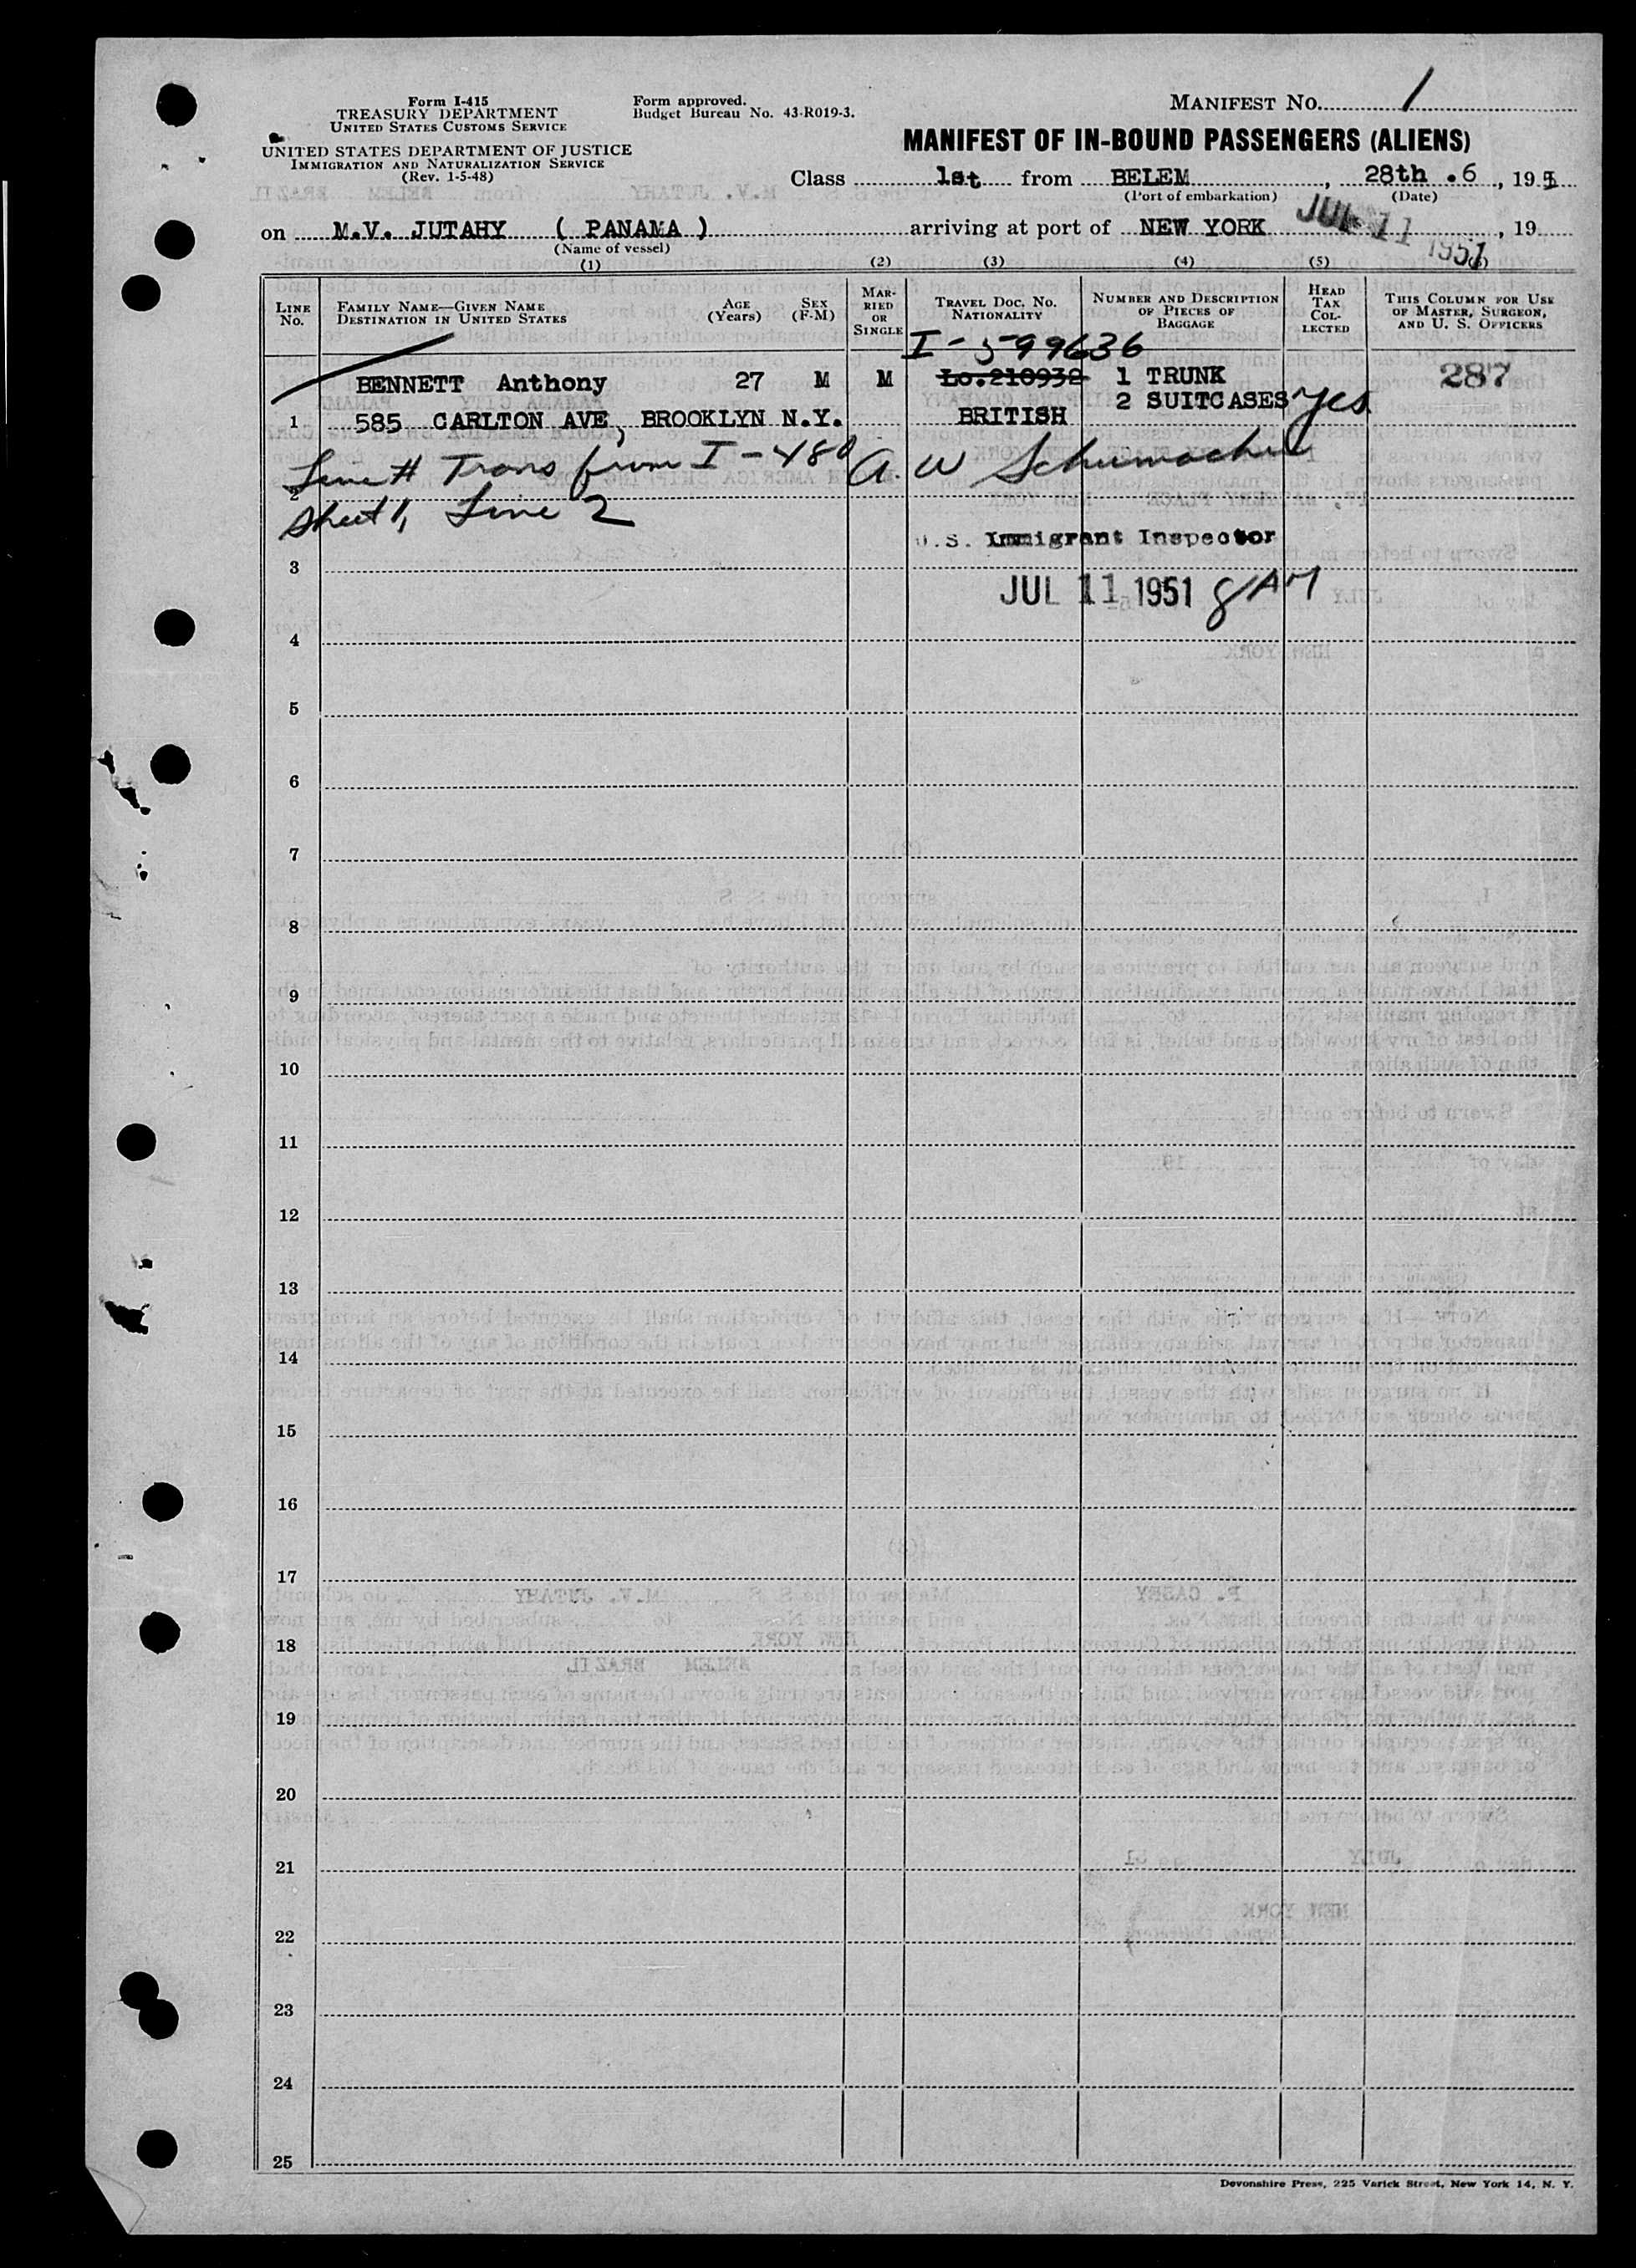 Form I-415
TREASURY DEPARTMENT
UNITED STATES CUSTOMS SERVICE
UNITED STATES DEPARTMENT OF JUSTICE
IMMIGRATION AND NATURALIZATION SERVICE
(Rev. 1-5-48)
Form approved.
Budget Bureau No. 43-R019-3.
MANIFEST NO. 1
MANIFEST OF IN-BOUND PASSENGERS (ALIENS)
Class 1st from BELEM, 28th .6, 195
(Port of embarkation) (Date)
on M.V. JUTAHY ( PANAMA ) arriving at port of NEW YORK JUL 11 1951, 19
(Name of vessel)
(1) (2) (3) (4) (5) (6)
LINE No.
FAMILY NAME—GIVEN NAME
DESTINATION IN UNITED STATES
AGE (Years)
SEX (F-M)
MARRIED OR SINGLE
TRAVEL DOC. NO. NATIONALITY
NUMBER AND DESCRIPTION OF PIECES OF BAGGAGE
HEAD TAX COLLECTED
THIS COLUMN FOR USE OF MASTER, SURGEON, AND U. S. OFFICERS
I-599636
BENNETT Anthony 27 M M Lo.210932 1 TRUNK 287
2 SUITCASES yes
1 585 CARLTON AVE, BROOKLYN N.Y. BRITISH
Line # Trans from I-480 A. W Schumacher
2
Sheet 1, Line 2
U.S. Immigrant Inspector
3
JUL 11 1951 8 AM
4
5
6
7
8
9
10
11
12
13
14
15
16
17
18
19
20
21
22
23
24
25
Devonshire Press, 225 Varick Street, New York 14, N. Y.